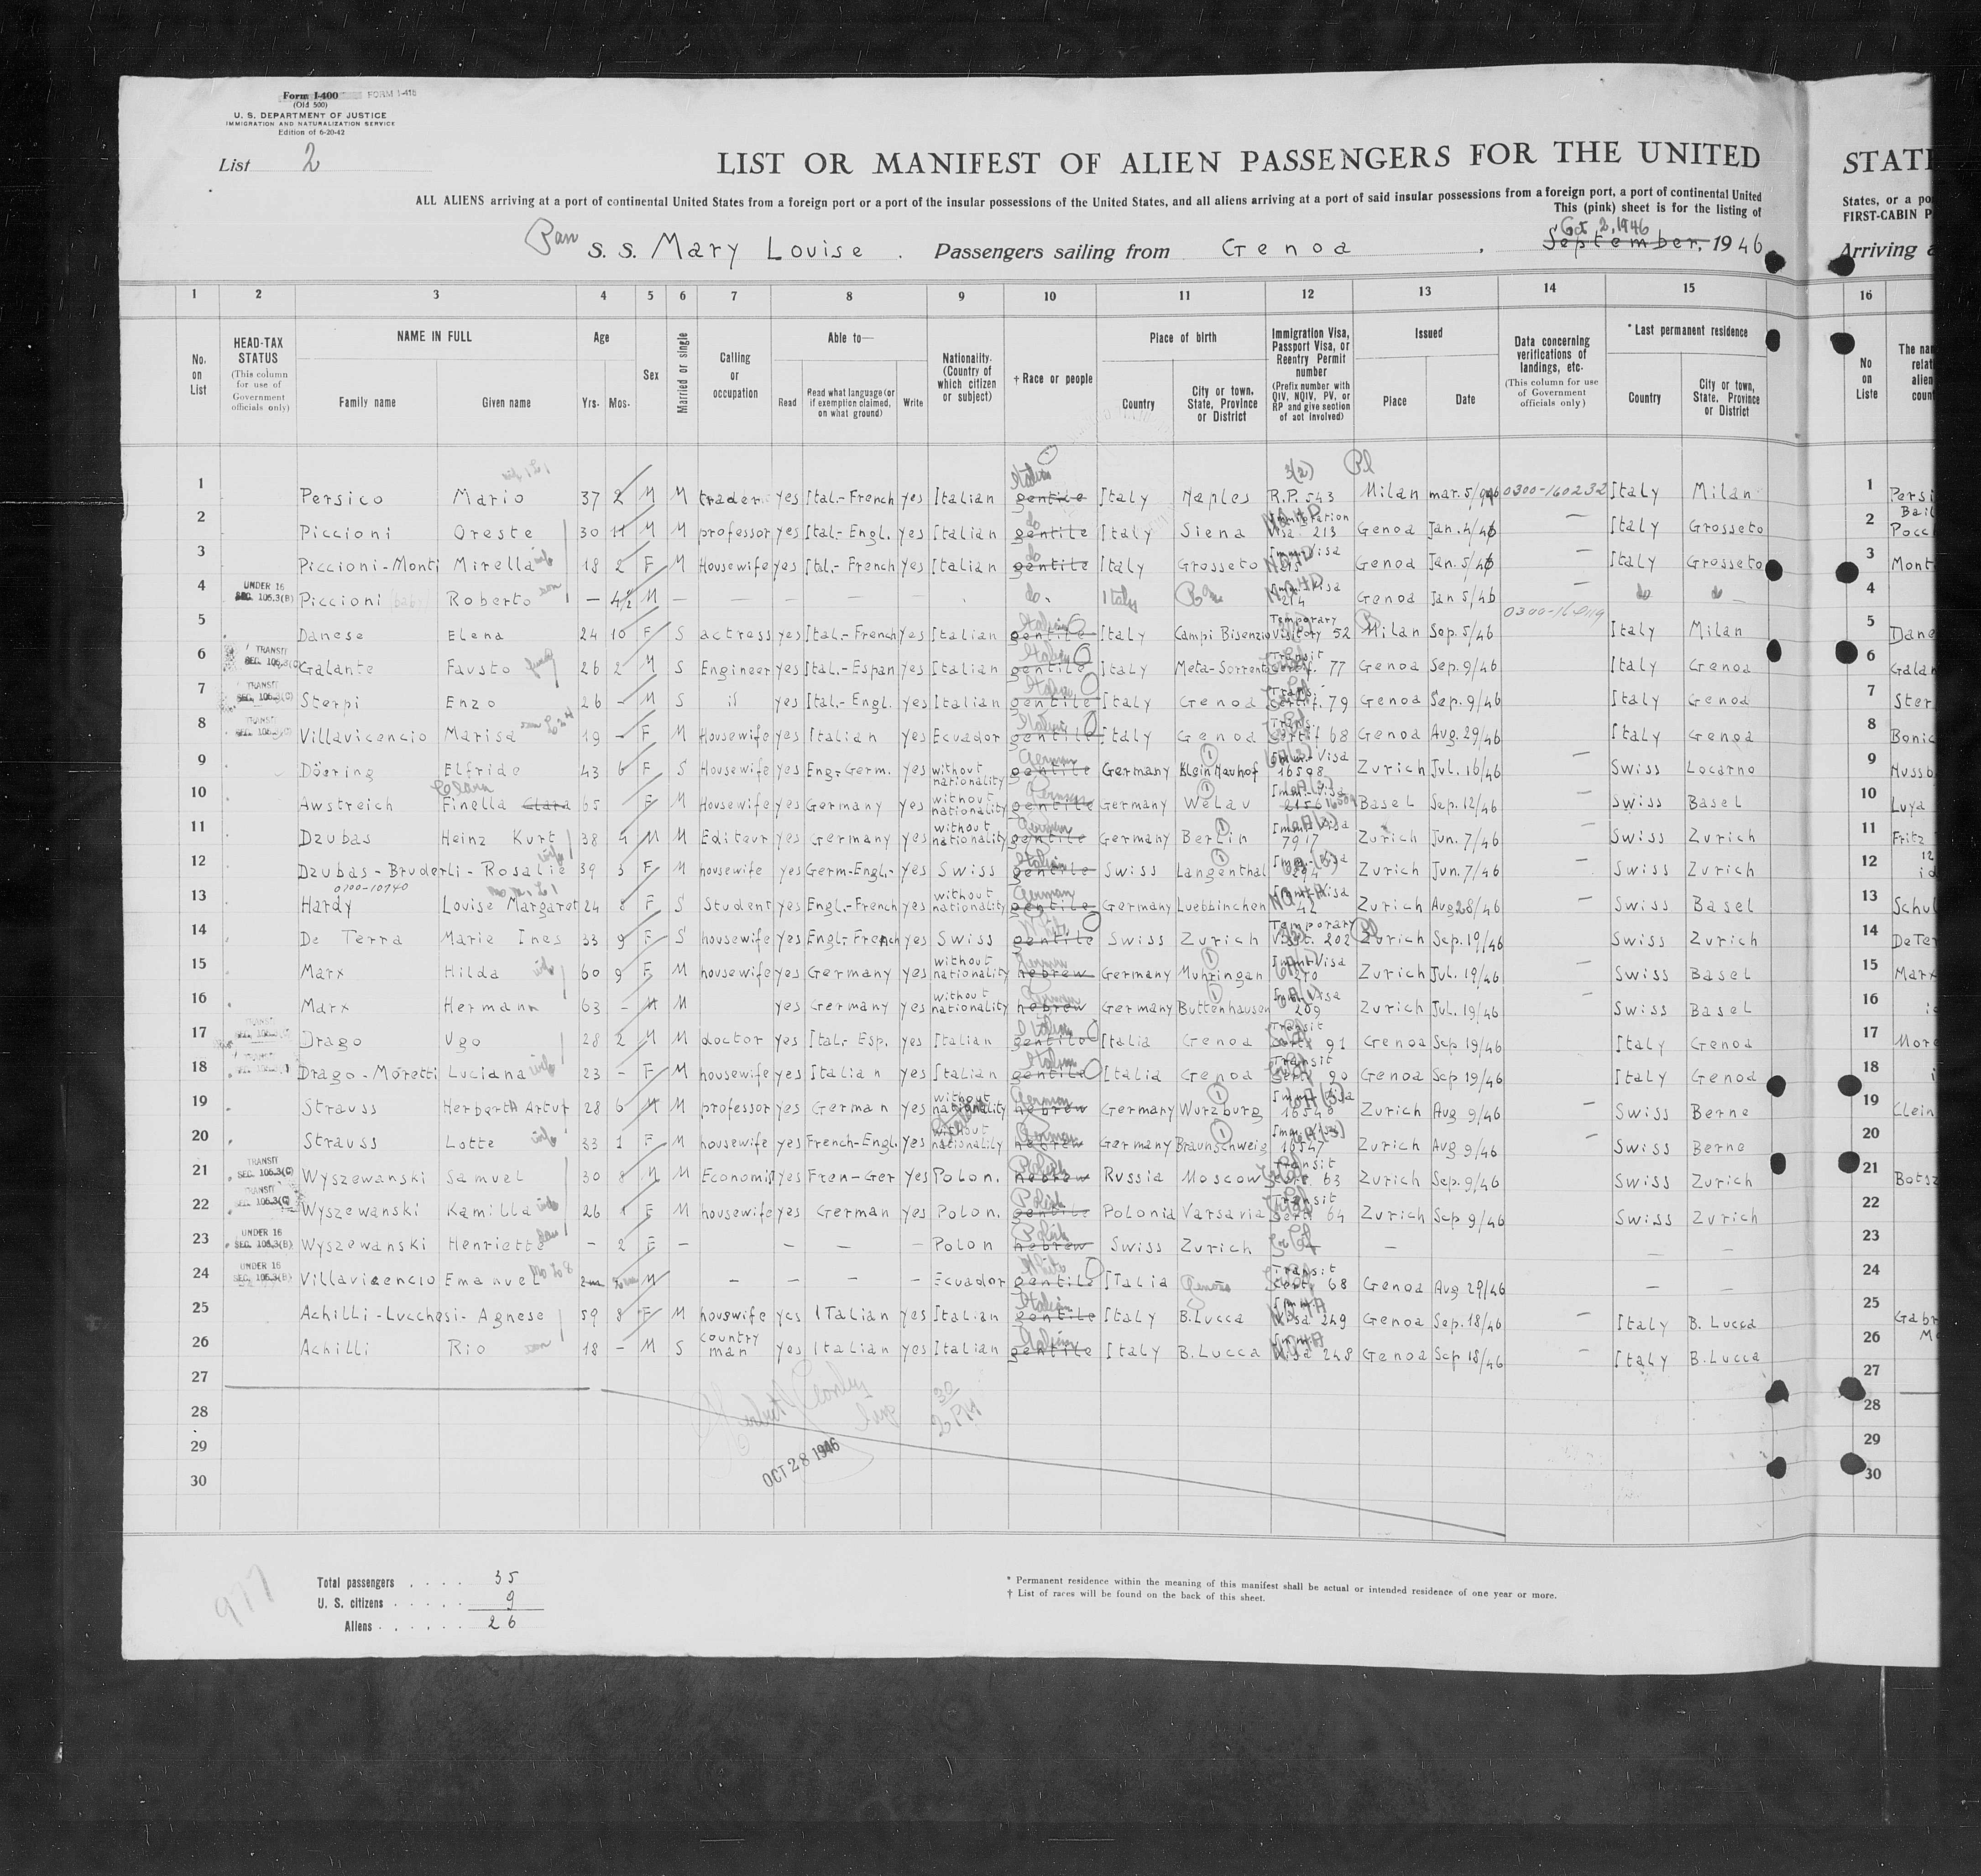 Form I-400 FORM I-418
(Old 500)
U. S. DEPARTMENT OF JUSTICE
IMMIGRATION AND NATURALIZATION SERVICE
Edition of 6-20-42
List 2
LIST OR MANIFEST OF ALIEN PASSENGERS FOR THE UNITED
STAT
ALL ALIENS arriving at a port of continental United States from a foreign port or a port of the insular possessions of the United States, and all aliens arriving at a port of said insular possessions from a foreign port, a port of continental United
States, or a po
This (pink) sheet is for the listing of
FIRST-CABIN P
Oct 2, 1946
Pan S. S. Mary Louise . Passengers sailing from Genoa , September, 1946
Arriving a
1 2 3 4 5 6 7 8 9 10 11 12 13 14 15 16
No. on List
HEAD-TAX STATUS
(This column for use of Government officials only)
NAME IN FULL
Family name Given name
Age
Yrs. Mos.
Sex
Married or single
Calling or occupation
Able to—
Read Read what language (or if exemption claimed, on what ground) Write
Nationality. (Country of which citizen or subject)
† Race or people
Place of birth
Country City or town, State, Province or District
Immigration Visa, Passport Visa, or Reentry Permit number
(Prefix number with QIV, NQIV, PV, or RP and give section of act involved)
Issued
Place Date
Data concerning verifications of landings, etc.
(This column for use of Government officials only)
* Last permanent residence
Country City or town, State. Province or District
No on Liste
The nam
relati
alien
count
1 Persico Mario 37 2 M M trader yes Ital.-French yes Italian gentile Italian Italy Naples 3(2) R.P. 543 Milan mar. 5/946 0300-160232 Italy Milan 1 Persi
Bail
2 Piccioni Oreste 30 11 M M professor yes Ital.-Engl. yes Italian gentile do Italy Siena Immigration Visa 213 Genoa Jan. 4/46 — Italy Grosseto 2 Pocc
3 Piccioni-Monti Mirella wife 18 2 F M Housewife yes Ital.-French yes Italian gentile do Italy Grosseto Imm. Visa Genoa Jan. 5/46 — Italy Grosseto 3 Mont
4 UNDER 16 SEC. 105.3(B) Piccioni Roberto son — 4½ M — — — — — do. Italy Imm. Visa 214 Genoa Jan 5/46 — do do 4
5 Danese Elena 24 10 F S actress yes Ital.-French yes Italian gentile Italian Italy Campi Bisenzio Temporary Visitor 52 Milan Sep. 5/46 0300-160119 Italy Milan 5 Dane
6 TRANSIT SEC. 105.3(C) Galante Fausto 26 2 M S Engineer yes Ital.-Espan yes Italian gentile Italian Italy Meta-Sorrento Transit Certif. 77 Genoa Sep. 9/46 Italy Genoa 6 Galan
7 TRANSIT SEC. 105.3(C) Sterpi Enzo 26 — M S il yes Ital.-Engl. yes Italian gentile Italian Italy Genoa Trans. Certif. 79 Genoa Sep. 9/46 Italy Genoa 7 Ster
8 TRANSIT SEC. 105.3(C) Villavicencio Marisa 19 — F M Housewife yes Italian yes Ecuador gentile Italian Italy Genoa Trans. Certif 68 Genoa Aug. 29/46 Italy Genoa 8 Bonic
9 Döering Elfride 43 6 F S Housewife yes Eng-Germ. yes without nationality gentile German Germany Klein Nauhof Imm. Visa 16598 Zurich Jul. 16/46 — Swiss Locarno 9 Nussb
10 Awstreich Clara Finella Clara 65 F M Housewife yes Germany yes without nationality gentile German Germany Welau Imm. Visa Basel Sep. 12/46 — Swiss Basel 10 Luya
11 Dzubas Heinz Kurt 38 4 M M Editeur yes Germany yes without nationality gentile German Germany Berlin Imm. Visa 7917 Zurich Jun. 7/46 — Swiss Zurich 11 Fritz
12 Dzubas-Bruderli-Rosalie wife 39 3 F M housewife yes Germ-Engl.- yes Swiss gentile Swiss Langenthal Zurich Jun. 7/46 — Swiss Zurich 12
0700-10740
13 Hardy Louise Margaret 24 8 F S Student yes Engl.-French yes without nationality gentile German Germany Luebbinchen Visa 42 Zurich Aug 28/46 — Swiss Basel 13 Schul
14 De Terra Marie Ines 33 9 F S housewife yes Engl-French yes Swiss gentile Swiss Zurich Temporary Visit. 202 Zurich Sep. 19/46 Swiss Zurich 14 DeTer
15 Marx Hilda wife 60 9 F M housewife yes Germany yes without nationality hebrew German Germany Muhringan Visa 210 Zurich Jul. 19/46 — Swiss Basel 15 Marx
16 Marx Hermann 63 — M M yes Germany yes without nationality hebrew German Germany Buttenhausen Visa 209 Zurich Jul. 19/46 — Swiss Basel 16
17 TRANSIT Drago Ugo 28 2 M M doctor yes Ital.- Esp. yes Italian gentile Italian Italia Genoa Transit 91 Genoa Sep 19/46 Italy Genoa 17 More
18 Drago-Moretti Luciana wife 23 — F M housewife yes Italian yes Italian gentile Italian Italia Genoa Transit 90 Genoa Sep 19/46 Italy Genoa 18
19 Strauss Herbert Artur 28 6 M M professor yes German yes without nationality hebrew German Germany Wurzburg Visa 16540 Zurich Aug 9/46 — Swiss Berne 19 Clein
20 Strauss Lotte wife 33 1 F M housewife yes French-Engl. yes without nationality hebrew German Germany Braunschweig 16547 Zurich Aug 9/46 — Swiss Berne 20
21 TRANSIT SEC. 105.3(C) Wyszewanski Samuel 30 8 M M Economist yes Fren-Ger yes Polon. hebrew Polish Russia Moscow Transit 63 Zurich Sep. 9/46 Swiss Zurich 21 Botsz
22 TRANSIT SEC. 105.3(C) Wyszewanski Kamilla wife 26 1 F M housewife yes German yes Polon. gentile Polish Polonia Varsavia Transit Certi 64 Zurich Sep 9/46 Swiss Zurich 22
23 UNDER 16 SEC. 105.3(B) Wyszewanski Henriette dau — 2 F — — — — Polon hebrew Polish Swiss Zurich — — — 23
24 UNDER 16 SEC. 105.3(B) Villavicencio Emanuel M — — — — Ecuador gentile Italia Genoa Transit Cert. 68 Genoa Aug 29/46 — — 24
25 Achilli-Lucchesi-Agnese 59 8 F M houswife yes Italian yes Italian gentile Italian Italy B.Lucca Imm. Visa 249 Genoa Sep. 18/46 — Italy B. Lucca 25 Gabr
26 Achilli Rio son 18 — M S country man yes Italian yes Italian gentile Italian Italy B.Lucca Imm. Visa 248 Genoa Sep 18/46 — Italy B.Lucca 26
27 27
28 28
29 29
30 30
30
2 PM
OCT 28 1946
977
Total passengers . . . . 35
U. S. citizens . . . . . 9
Aliens . . . . . . 26
* Permanent residence within the meaning of this manifest shall be actual or intended residence of one year or more.
† List of races will be found on the back of this sheet.